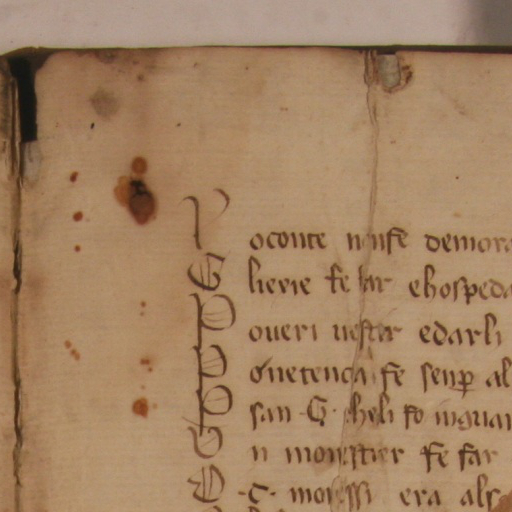 Loconte nonse demora
Glierie fe far ehospeda
Poueri uestir edarli
Ponetença fe senp al
Psan G cheli fo inguar
Gn monestier fe far
O C monessi era als